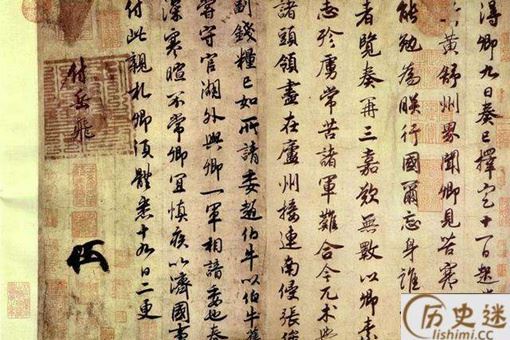 得卿九日奏已擇定十一日起
黃舒州界聞卿見苦寒
能勉為朕行國爾忘身誰
者覽奏再三嘉歎無斁以卿素
志殄虜常苦諸軍難合今兀朮
諸頭領盡在廬州接連南侵張俊
副錢糧已如所請委趙伯牛以伯牛舊
嘗守官湖外與卿一軍相諳委也春
深寒暄不常卿宜慎疾以濟國事
付此親札卿須體悉十九日二更
付岳飛
历史迷
lishimi.cc